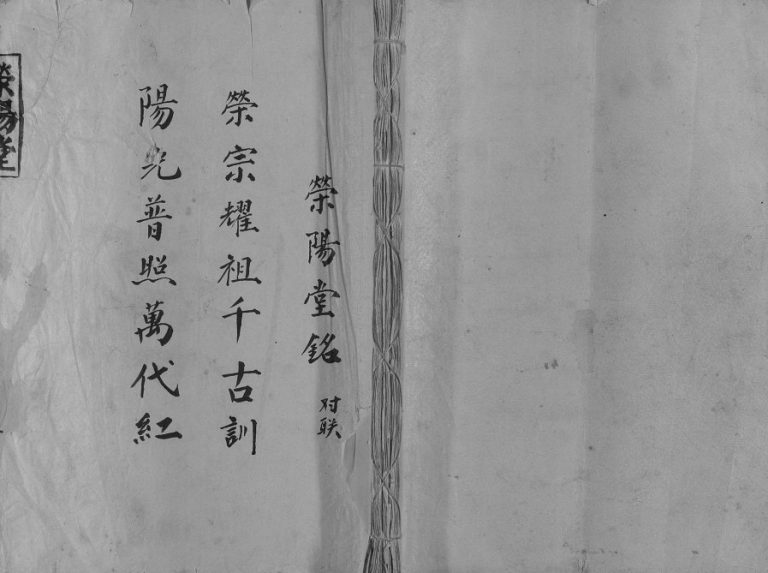 榮陽堂銘 对联
榮宗耀祖千古訓
陽光普照萬代紅
榮陽堂